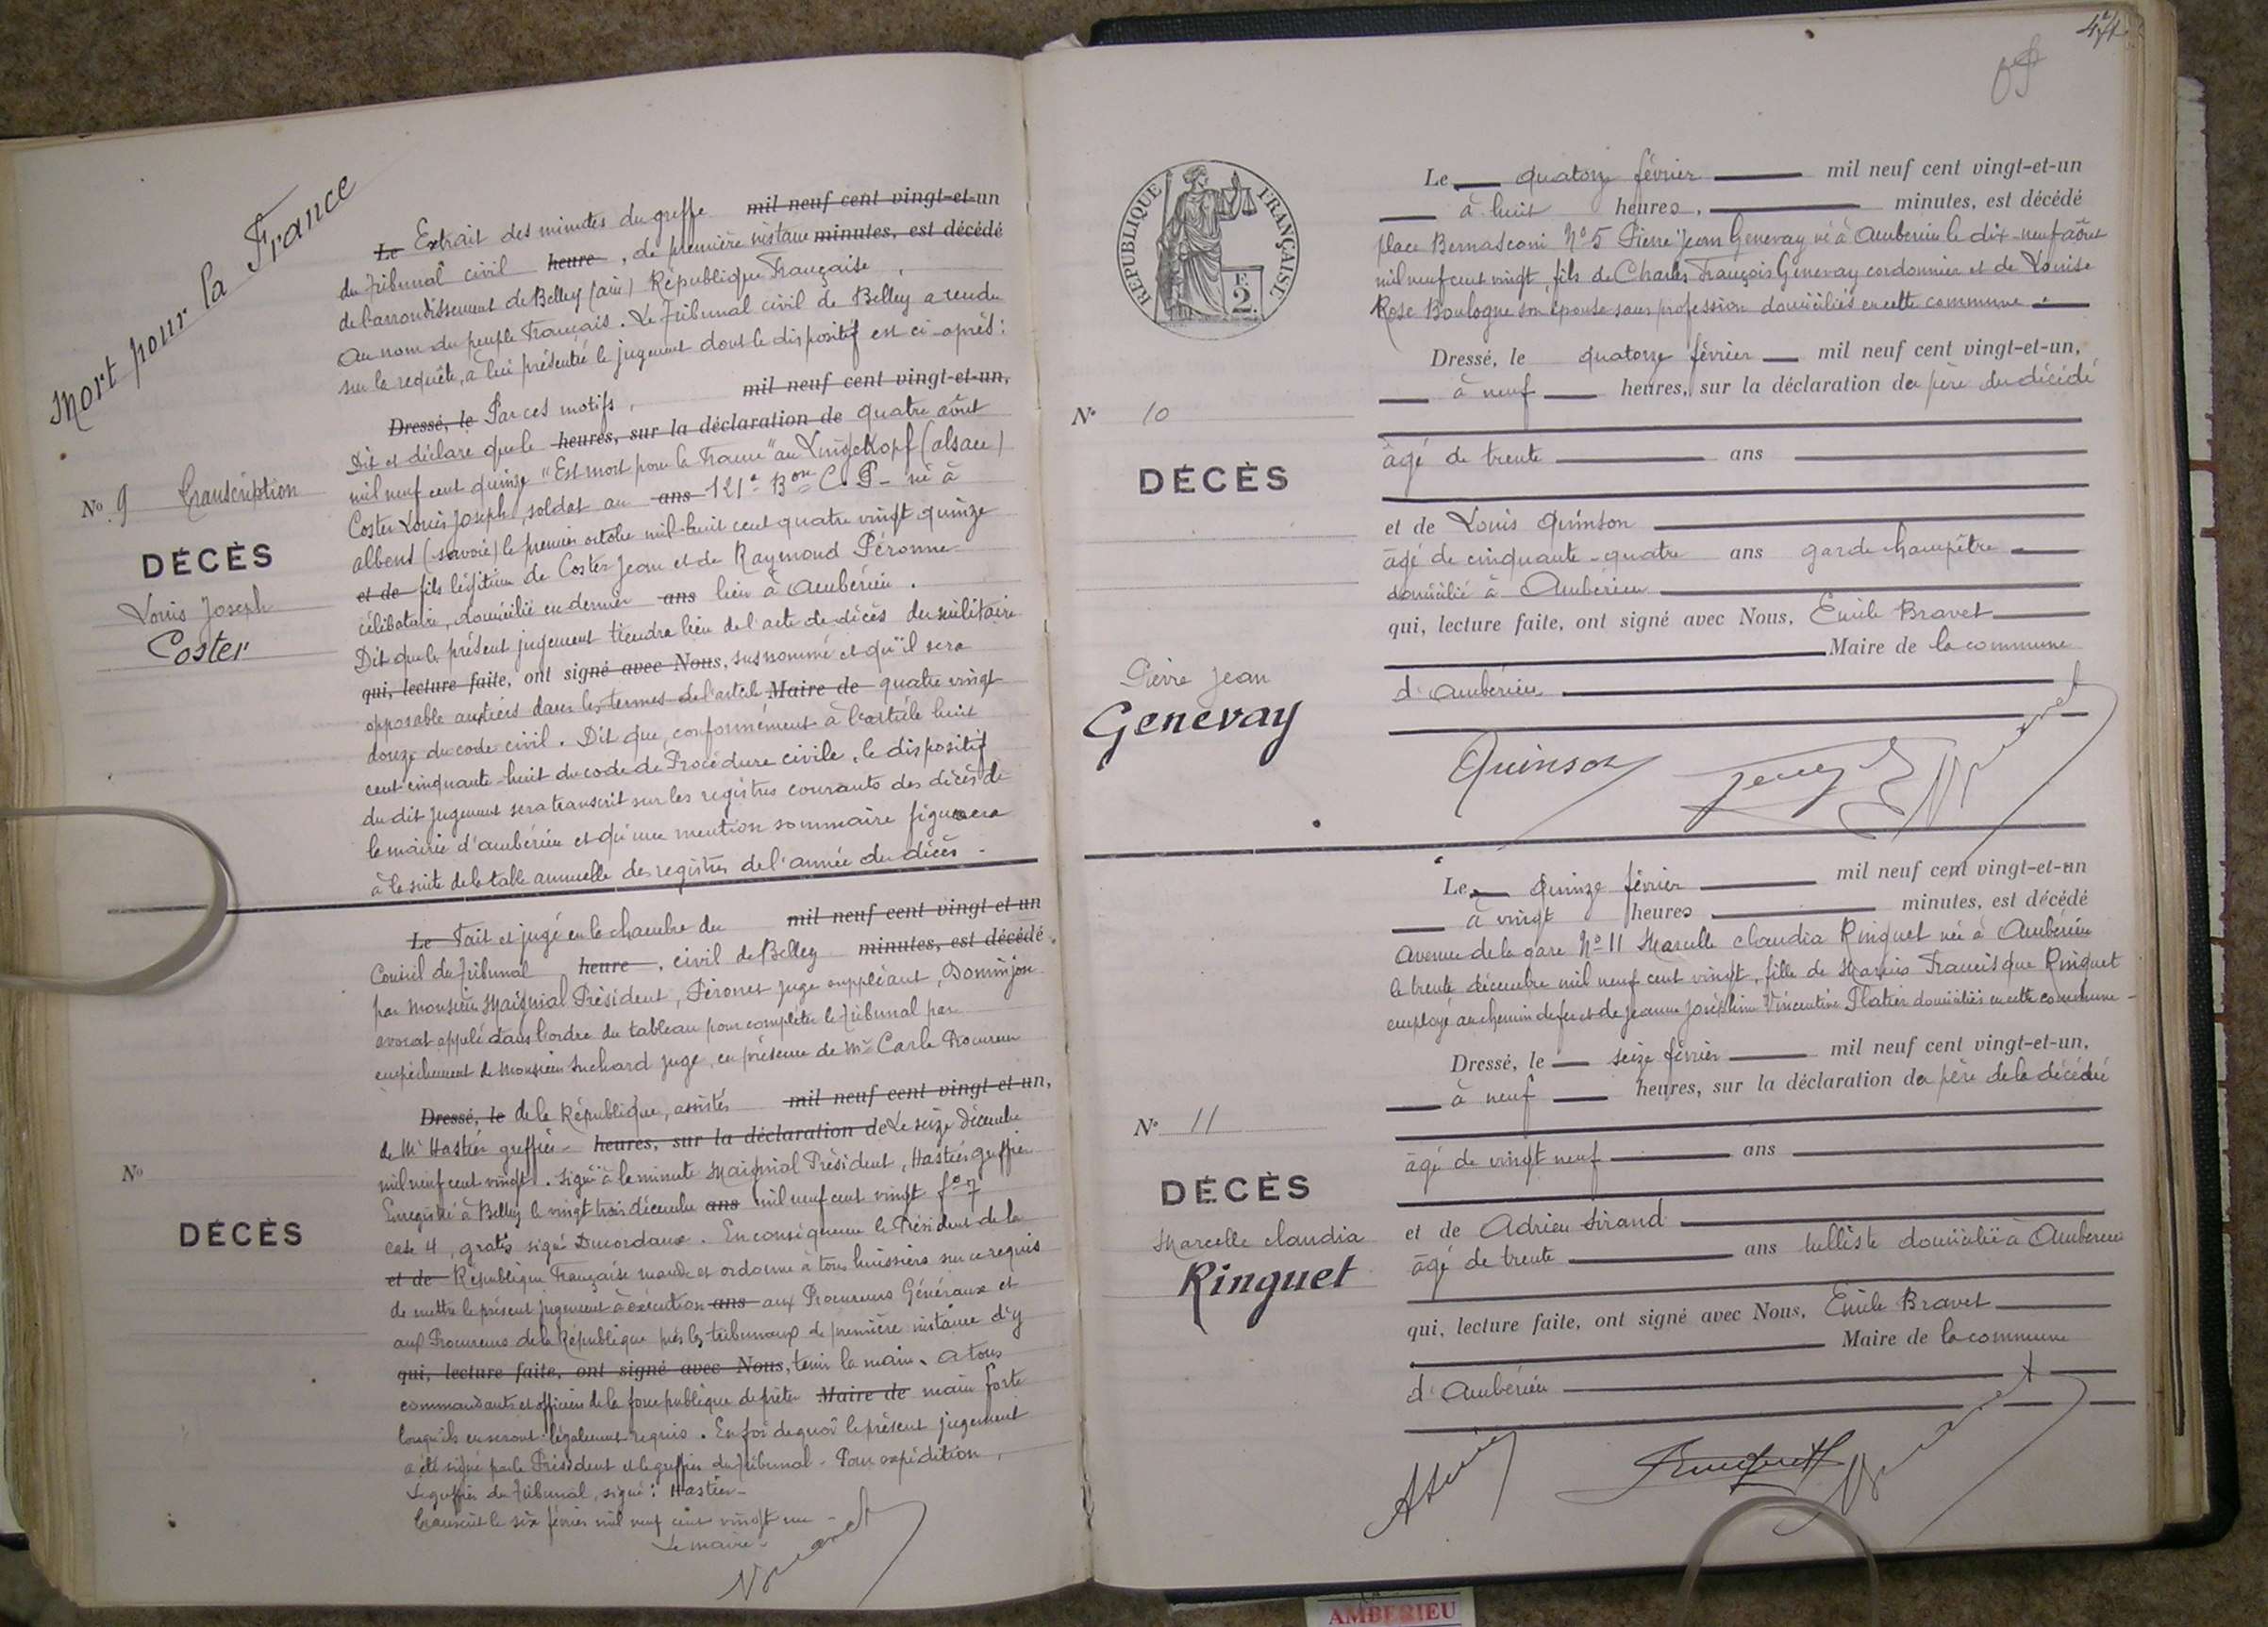 Mort pour la France
Le Extrait des minutes du greffe mil neuf cent vingt-et-un
du Tribunal civil heure, de première instance minutes, est décédé
de l'arrondissement de Belley (ain) République Française.
Au nom du peuple Français. Le Tribunal civil de Belley a rendu
sur la requête, à lui présentée le jugement dont le dispositif est ci-après:
Dressé, le Par ces motifs, mil neuf cent vingt-et-un,
Dit et déclare que le heures, sur la déclaration de quatre août
mil neuf cent quinze "Est mort pour la France" au Lingekopf (alsace)
Coster Louis Joseph, soldat au ans 121e Bon C. P- né à
albens (savoie) le premier octobre mil-huit cent quatre vingt quinze
et de fils légitime de Coster Jean et de Raymond Péronne
célibataire, domicilié en dernier ans lieu à Ambérieu.
Dit que le présent jugement tiendra lieu de l'acte de décès du militaire
qui, lecture faite, ont signé avec Nous, susnommé et qu'il sera
opposable aux tiers dans les termes de l'article Maire de quatre vingt
douze du code civil. Dit que, conformément à l'article huit
cent cinquante-huit du code de Procédure civile, le dispositif
du dit jugement sera transcrit sur les registres courants des décès de
la mairie d'ambérieu et qu'une mention sommaire figurera
à la suite de la table annuelle des registres de l'année du décès.
No 9 Transcription
DÉCÈS
Louis Joseph
Coster
Le Fait et jugé en la chambre du mil neuf cent vingt et un
Conseil du Tribunal heure, civil de Belley minutes, est décédé
par Monsieur Maignial Président, Péronet juge suppléant, Dominjon
avocat appelé dans l'ordre du tableau pour compléter le tribunal par
empêchement de Monsieur Suchard juge, en présence de Mr Carle Procureur
Dressé, le de la République, assistés mil neuf cent vingt-et-un,
de Mr Hastier greffier- heures, sur la déclaration de Le seize décembre
mil neuf cent vingt. signé à la minute Maignial Président, Hastier greffier
Enregistré à Belley le vingt trois décembre ans mil neuf cent vingt fo 7
case 4, gratis signé Ducordaux. En conséquence le Président de la
et de République Française mande et ordonne à tous huissiers sur ce requis
de mettre le présent jugement à exécution ans aux Procureurs Généraux et
aux Procureurs de la République près les tribunaux de première instance d'y
qui, lecture faite, ont signé avec Nous, tenir la main. à tous
commandants et officiers de la force publique de prêter Maire de main forte
lorsqu'ils en seront légalement requis. En foi de quoi le présent jugement
a été signé par le Président et le greffier du Tribunal - Pour expédition,
Le greffier du Tribunal, signé: Hastier-
Transcrit le six février mil neuf cent vingt un -
Le maire-
No
DÉCÈS
47
REPUBLIQUE FRANÇAISE
E
2
Le quatorze février mil neuf cent vingt-et-un
à huit heures, minutes, est décédé
place Bernasconi No 5 Pierre Jean Genevay né à Ambérieu le dix-neuf août
mil neuf cent vingt, fils de Charles François Genevay cordonnier et de Louise
Rose Boulogne son épouse sans profession domiciliés en cette commune.
Dressé, le quatorze février mil neuf cent vingt-et-un,
à neuf heures, sur la déclaration du père du décédé
âgé de trente ans
et de Louis Quinson
âgé de cinquante-quatre ans garde champêtre
domicilié à Ambérieu
qui, lecture faite, ont signé avec Nous, Emile Bravet
Maire de la commune
d'Ambérieu
Quinson
No 10
DÉCÈS
Pierre Jean
Genevay
Le quinze février mil neuf cent vingt-et-un
à vingt heures minutes, est décédé
avenue de la gare No 11 Marcelle Claudia Ringuet née à Ambérieu
le trente décembre mil neuf cent vingt, fille de Marius Francisque Ringuet
employé au chemin de fer et de Jeanne Joséphine Vincentine Platier domiciliés en cette commune-
Dressé, le seize février mil neuf cent vingt-et-un,
à neuf heures, sur la déclaration du père de la décédée
âgé de vingt neuf ans
et de Adrien Sirand
âgé de trente ans tulliste domicilié à Ambérieu
qui, lecture faite, ont signé avec Nous, Emile Bravet
Maire de la commune
d'Ambérieu
No 11
DÉCÈS
Marcelle Claudia
Ringuet
AMBERIEU